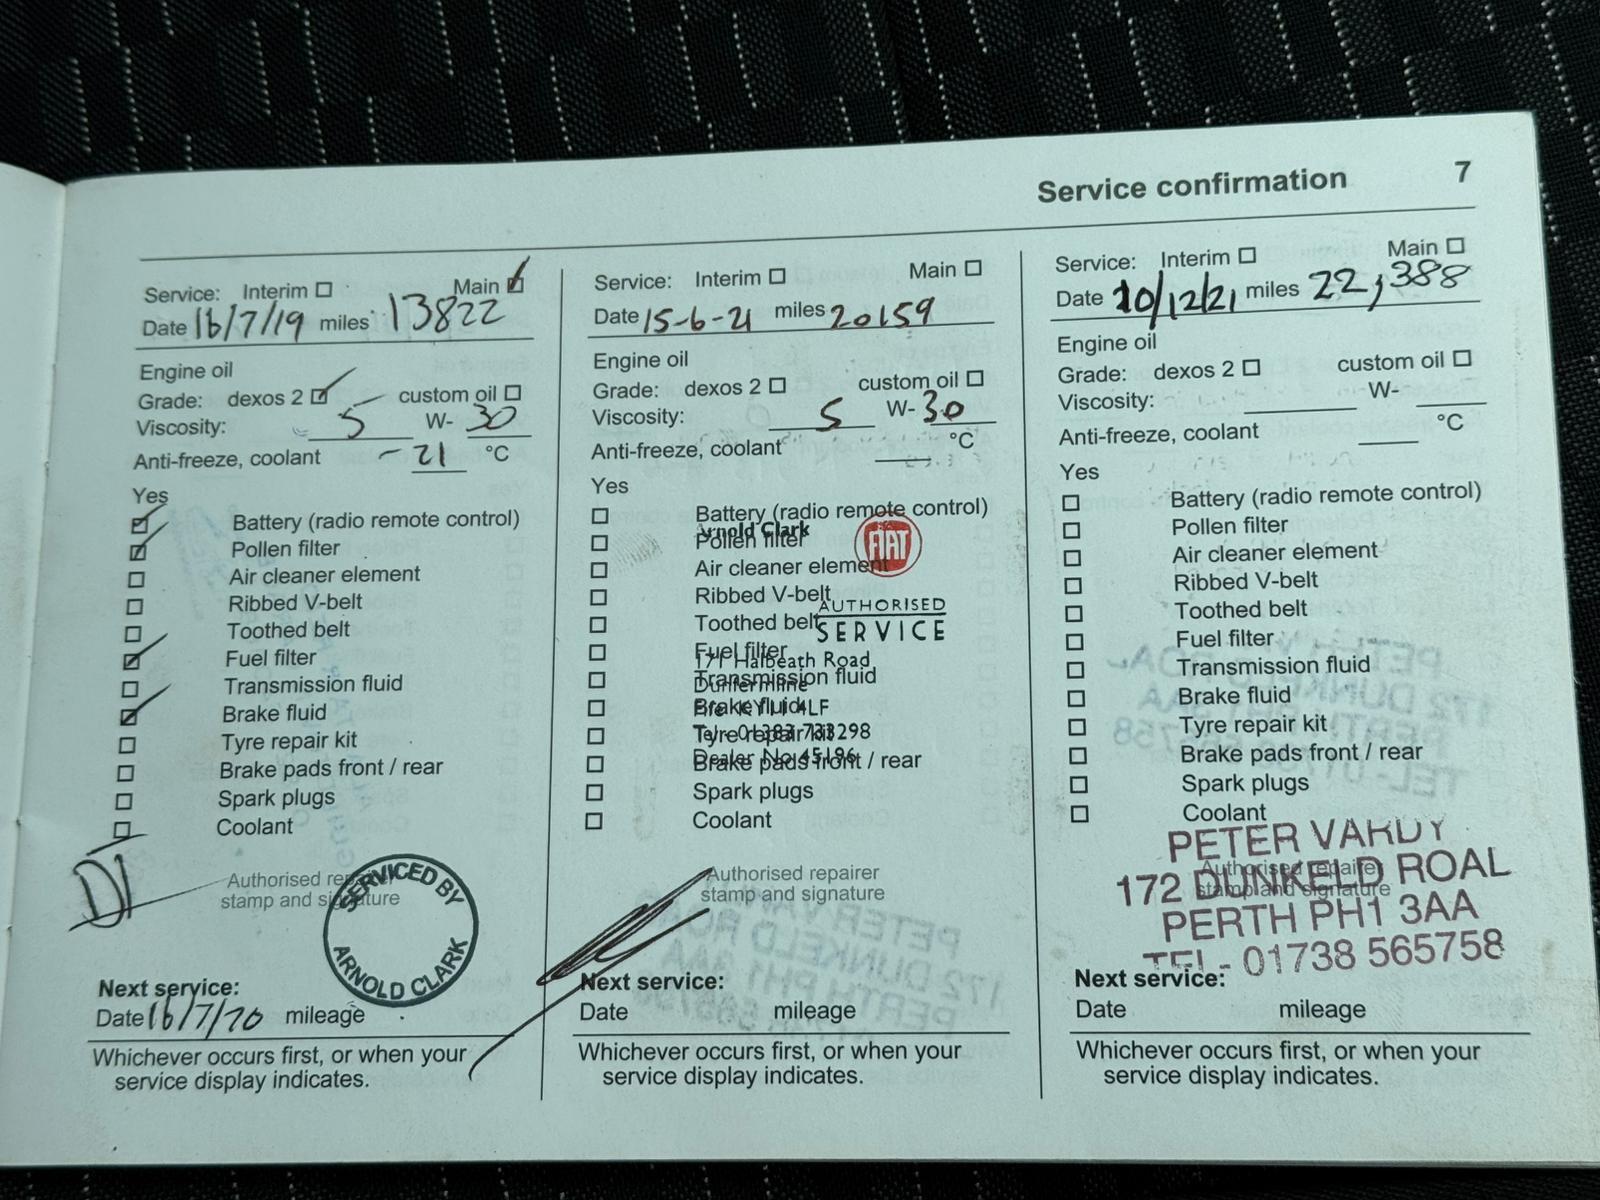 Service confirmation 7
Service: Interim Main
Date 16/7/19 miles 13822
Engine oil
Grade: dexos 2 custom oil
Viscosity: 5 W- 30
Anti-freeze, coolant -21 °C
Yes
Battery (radio remote control)
Pollen filter
Air cleaner element
Ribbed V-belt
Toothed belt
Fuel filter
Transmission fluid
Brake fluid
Tyre repair kit
Brake pads front / rear
Spark plugs
Coolant
Authorised repairer
stamp and signature
SERVICED BY
ARNOLD CLARK
Next service:
Date 16/7/20 mileage
Whichever occurs first, or when your
service display indicates.
Service: Interim Main
Date 15-6-21 miles 20159
Engine oil
Grade: dexos 2 custom oil
Viscosity: 5 W- 30
Anti-freeze, coolant °C
Yes
Battery (radio remote control)
Arnold Clark
Pollen filter
FIAT
Air cleaner element
Ribbed V-belt
AUTHORISED
Toothed belt
SERVICE
Fuel filter
171 Halbeath Road
Transmission fluid
Dunfermline
Brake fluid
Fife KY11 4LF
Tyre repair kit
Tel: 01383 733298
Dealer No 45196
Brake pads front / rear
Spark plugs
Coolant
Authorised repairer
stamp and signature
Next service:
Date mileage
Whichever occurs first, or when your
service display indicates.
Service: Interim Main
Date 10/12/21 miles 22,388
Engine oil
Grade: dexos 2 custom oil
Viscosity: W-
Anti-freeze, coolant °C
Yes
Battery (radio remote control)
Pollen filter
Air cleaner element
Ribbed V-belt
Toothed belt
Fuel filter
Transmission fluid
Brake fluid
Tyre repair kit
Brake pads front / rear
Spark plugs
Coolant
PETER VARDY
Authorised repairer
172 DUNKELD ROAL
stamp and signature
PERTH PH1 3AA
TEL- 01738 565758
Next service:
Date mileage
Whichever occurs first, or when your
service display indicates.